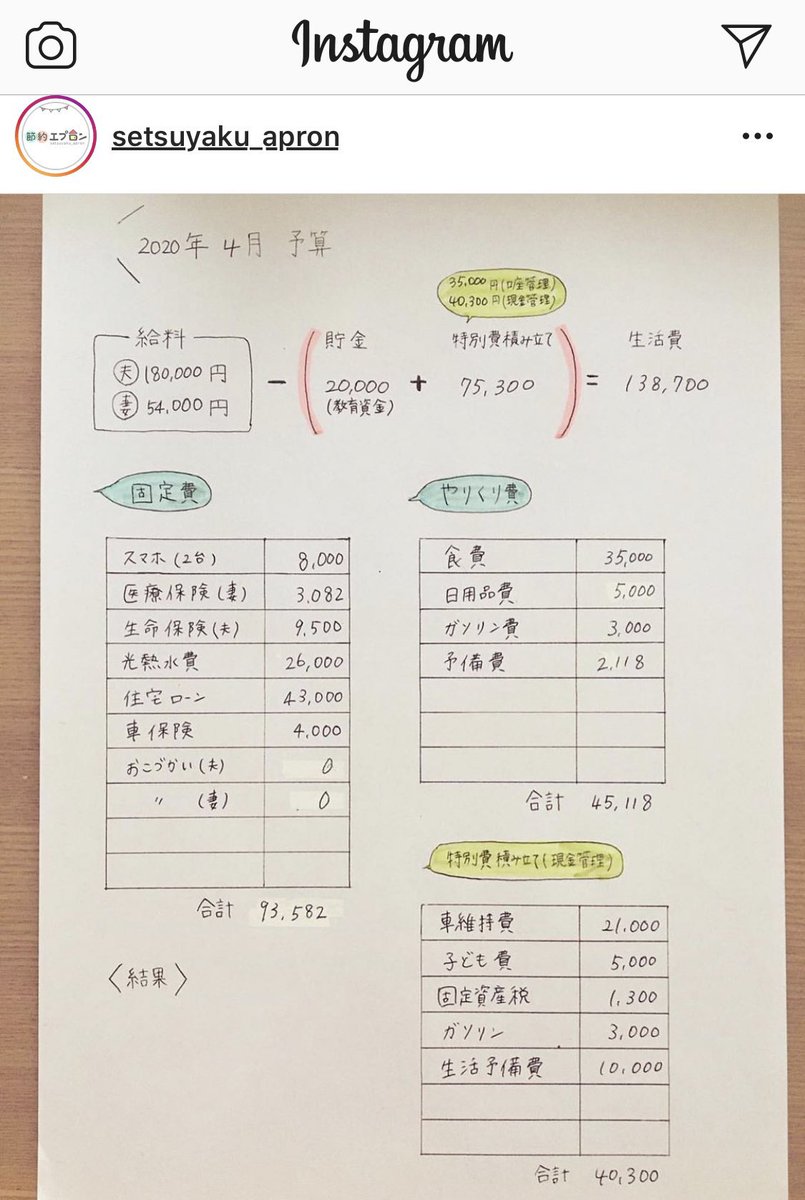 Instagram
節約エプロン
setsuyaku_apron
setsuyaku_apron
2020年 4月 予算
35,000円(口座管理)
40,300円(現金管理)
給料
夫 180,000円
妻 54,000円
−
( 貯金
20,000
(教育資金)
+
特別費積み立て
75,300 )
=
生活費
138,700
固定費
スマホ(2台) 8,000
医療保険(妻) 3,082
生命保険(夫) 9,500
光熱水費 26,000
住宅ローン 43,000
車保険 4,000
おこづかい(夫) 0
〃 (妻) 0
合計 93,582
〈結果〉
やりくり費
食費 35,000
日用品費 5,000
ガソリン費 3,000
予備費 2,118
合計 45,118
特別費積み立て(現金管理)
車維持費 21,000
子ども費 5,000
固定資産税 1,300
ガソリン 3,000
生活予備費 10,000
合計 40,300